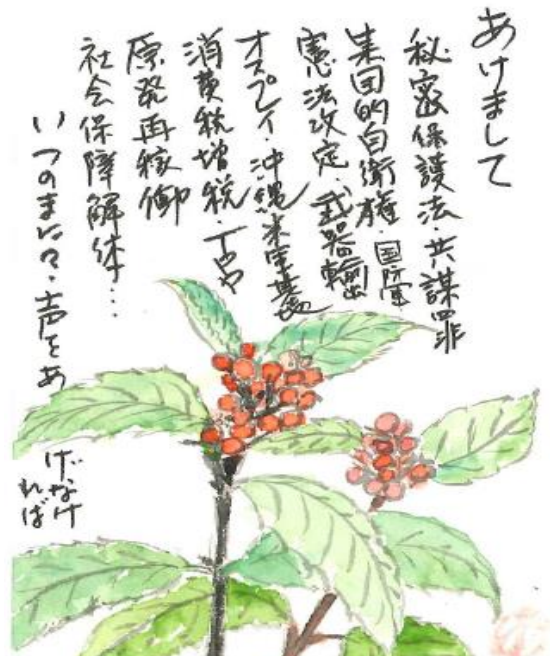 あけまして
秘密保護法・共謀罪
集団的自衛権・国防軍
憲法改定・武器輸出
オスプレイ・沖縄米軍基地
消費税増税・TPP
原発再稼働
社会保障解体…
いつのまにか・声をあ
げなけ
れば